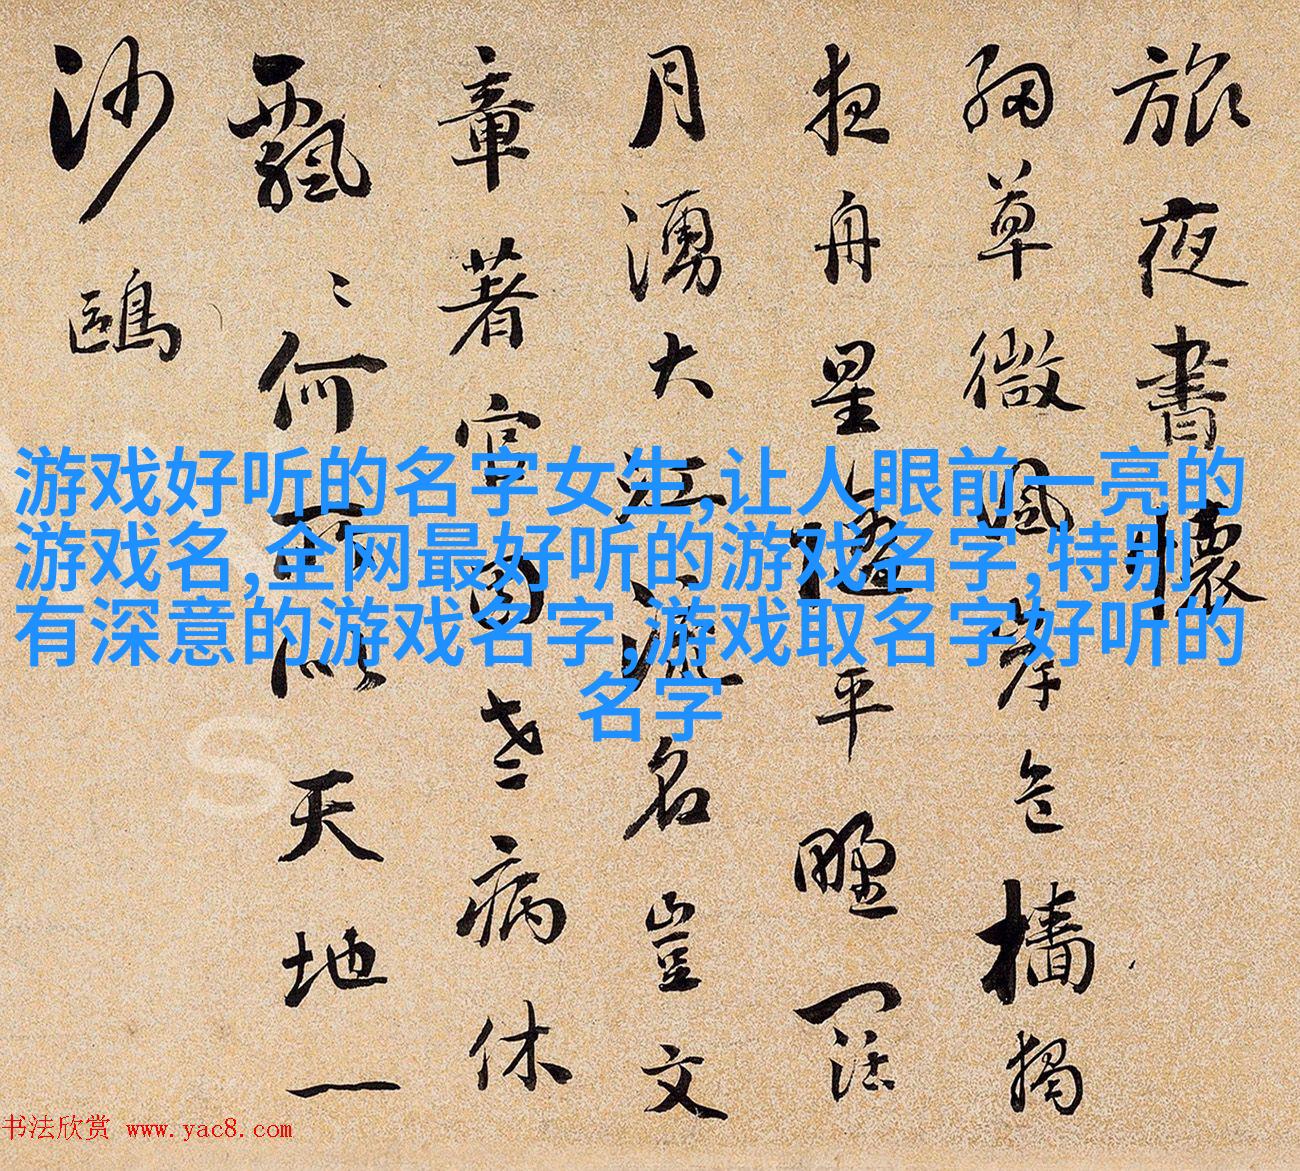 旅夜書懷
細草微風岸危檣獨
夜舟星隨平野闊
月湧大江流名豈文
章著官因老病休
飄〻何所似天地一
沙鷗
游戏好听的名字女生,让人眼前一亮的
游戏名,全网最好听的游戏名字,特别
有深意的游戏名字,游戏取名字好听的
名字
书法欣赏 www.yac8.com